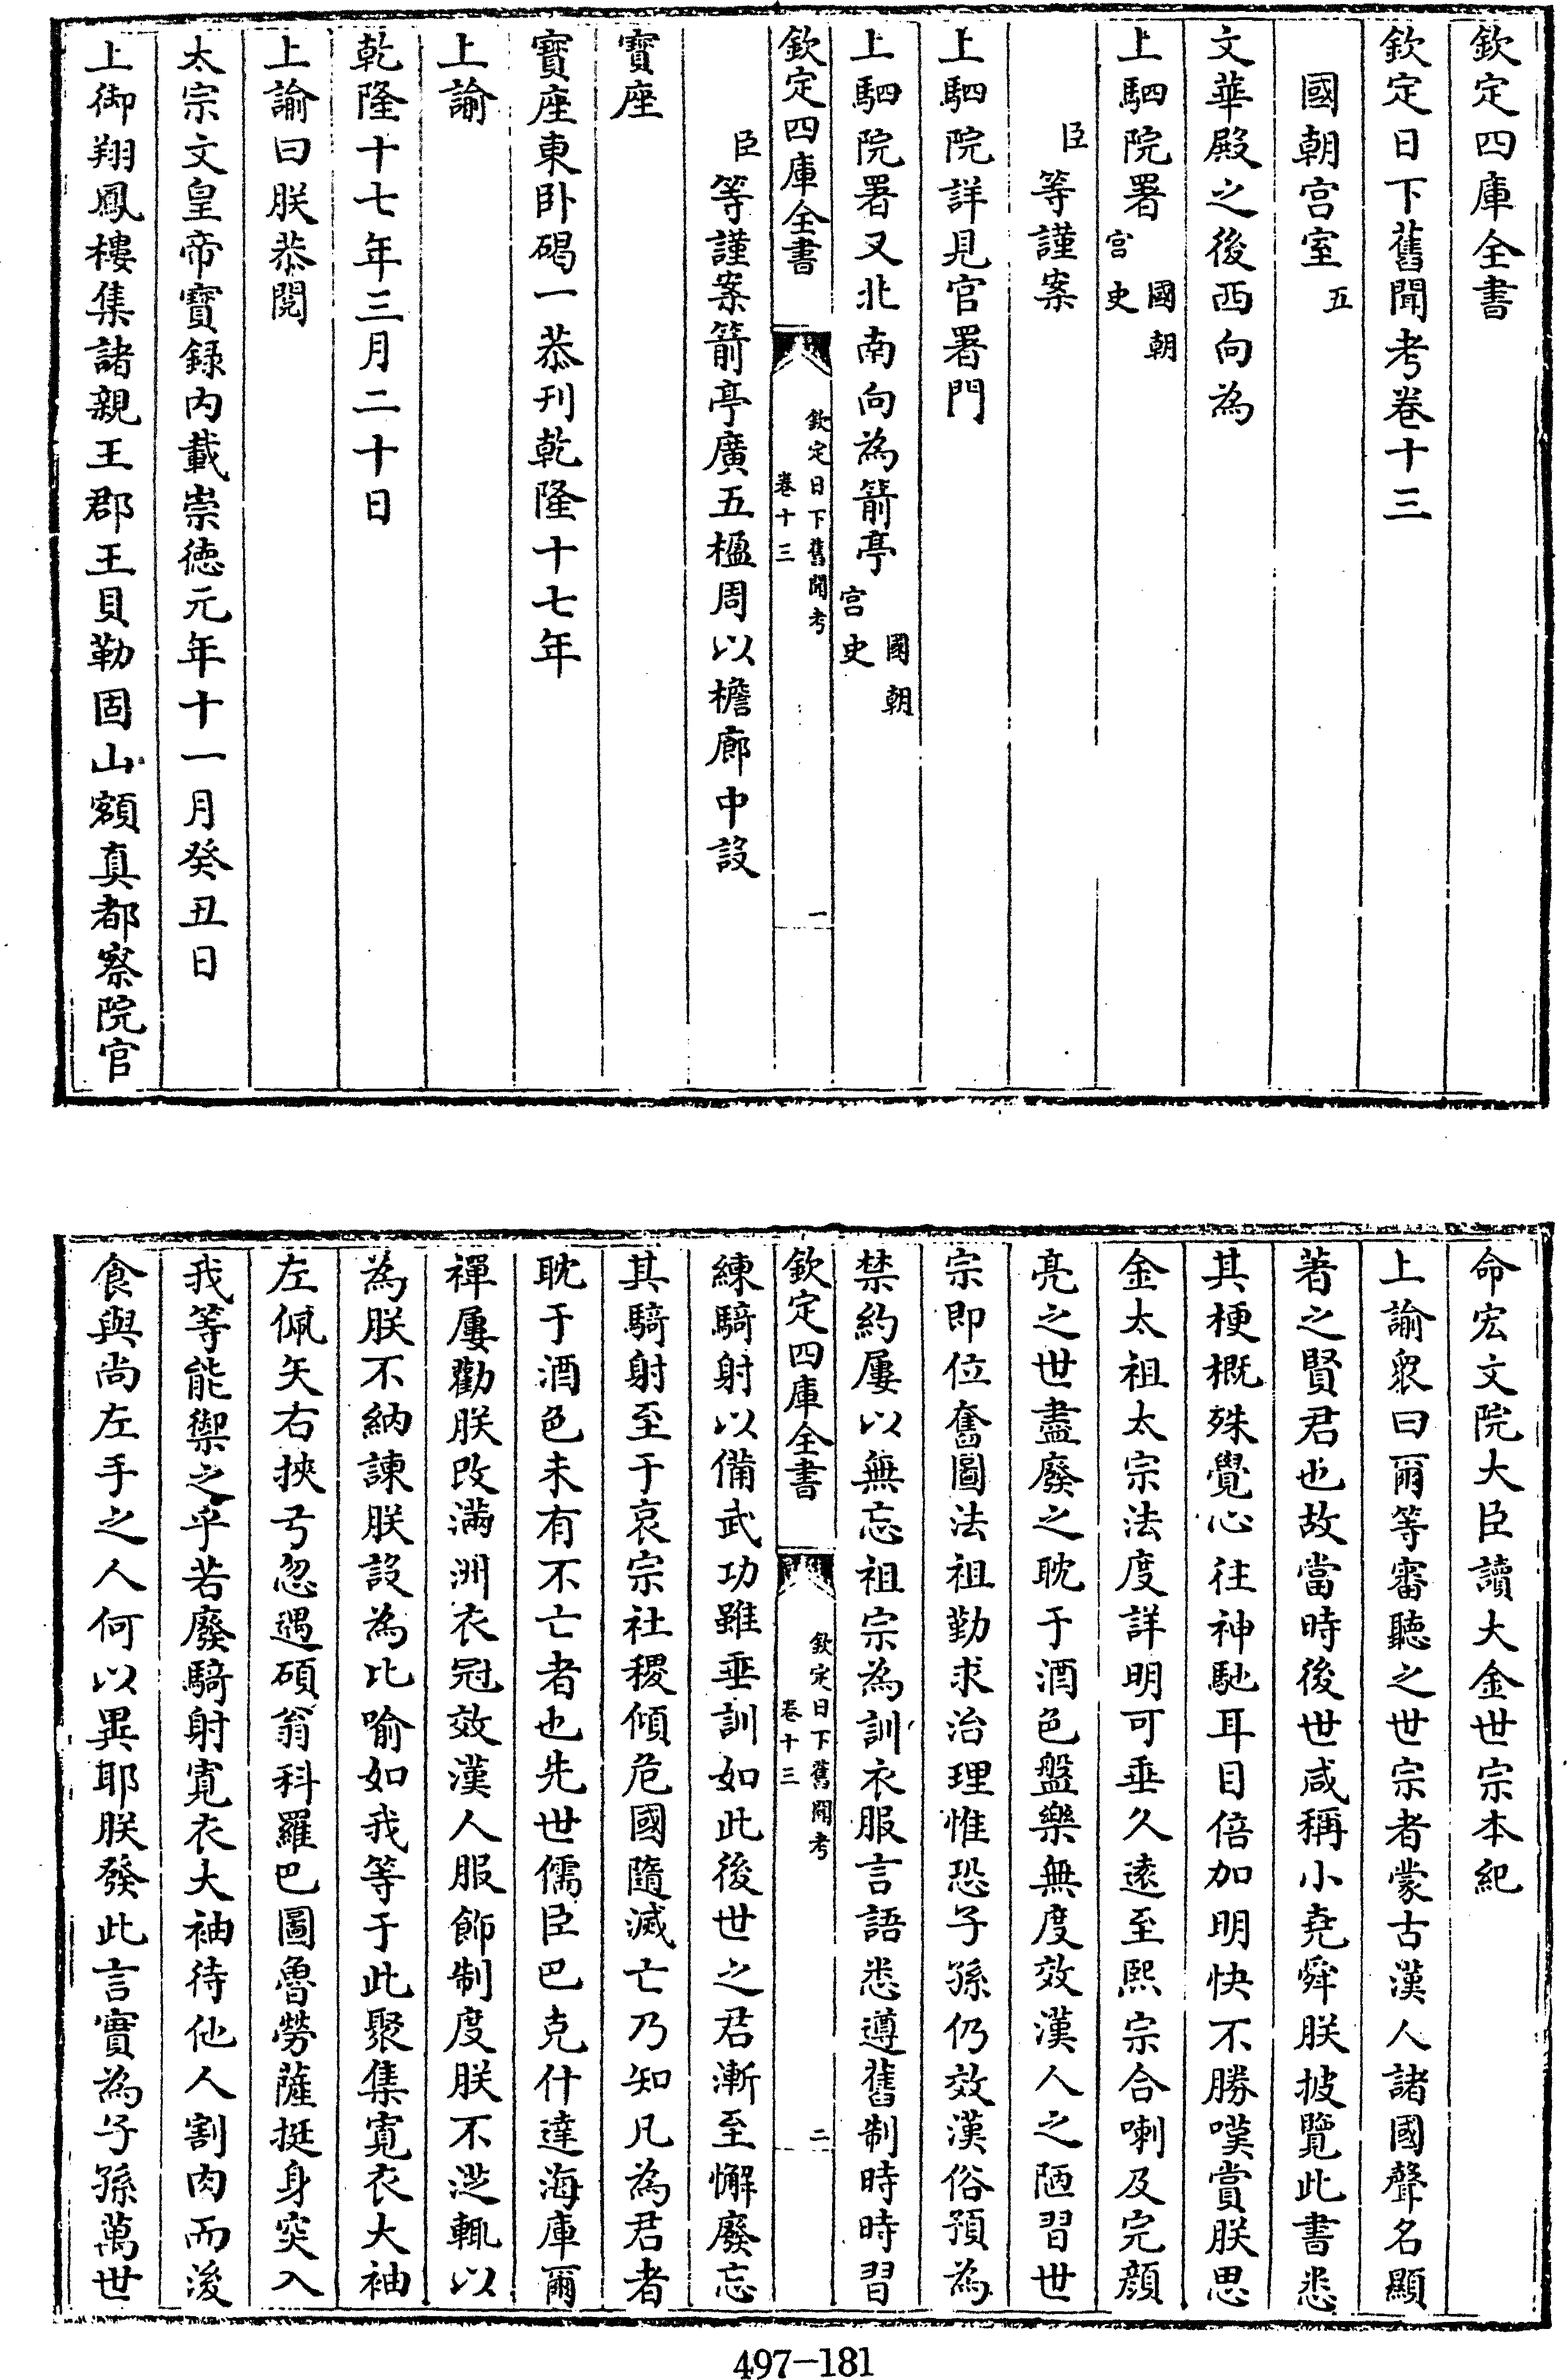 欽定四庫全書
欽定日下舊聞考卷十三
國朝宫室五
文華殿之後西向為
上駟院署國朝宫史
臣等謹案
上駟院詳見官署門
上駟院署又北南向為箭亭國朝宫史
欽定四庫全書 欽定日下舊聞考卷十三 一
臣等謹案箭亭廣五楹周以檐廊中設
寶座
寶座東卧碣一恭刊乾隆十七年
上諭
乾隆十七年三月二十日
上諭曰朕恭閲
太宗文皇帝實録内載崇徳元年十一月癸丑日
上御翔鳳樓集諸親王郡王貝勒固山額真都察院官
命宏文院大臣讀大金世宗本紀
上諭衆曰爾等審聽之世宗者蒙古漢人諸國聲名顯
著之賢君也故當時後世咸稱小堯舜朕披覽此書悉
其梗概殊覺心往神馳耳目倍加明快不勝嘆賞朕思
金太祖太宗法度詳明可垂久遠至熙宗合喇及完顔
亮之世盡廢之耽于酒色盤樂無度效漢人之陋習世
宗即位奮圖法祖勤求治理惟恐子孫仍效漢俗預為
禁約屢以無忘祖宗為訓衣服言語悉遵舊制時時習
欽定四庫全書 欽定日下舊聞考卷十三 二
練騎射以備武功雖垂訓如此後世之君漸至懈廢忘
其騎射至于哀宗社稷傾危國隨滅亡乃知凡為君者
耽于酒色未有不亡者也先世儒臣巴克什達海庫爾
禪屢勸朕改滿洲衣冠效漢人服飾制度朕不從輒以
為朕不納諫朕設為比喻如我等于此聚集寛衣大袖
左佩矢右挾弓忽遇碩翁科羅巴圖魯勞薩挺身突入
我等能禦之乎若廢騎射寛衣大袖待他人割肉而後
食與尚左手之人何以異耶朕發此言實為子孫萬世
497-181